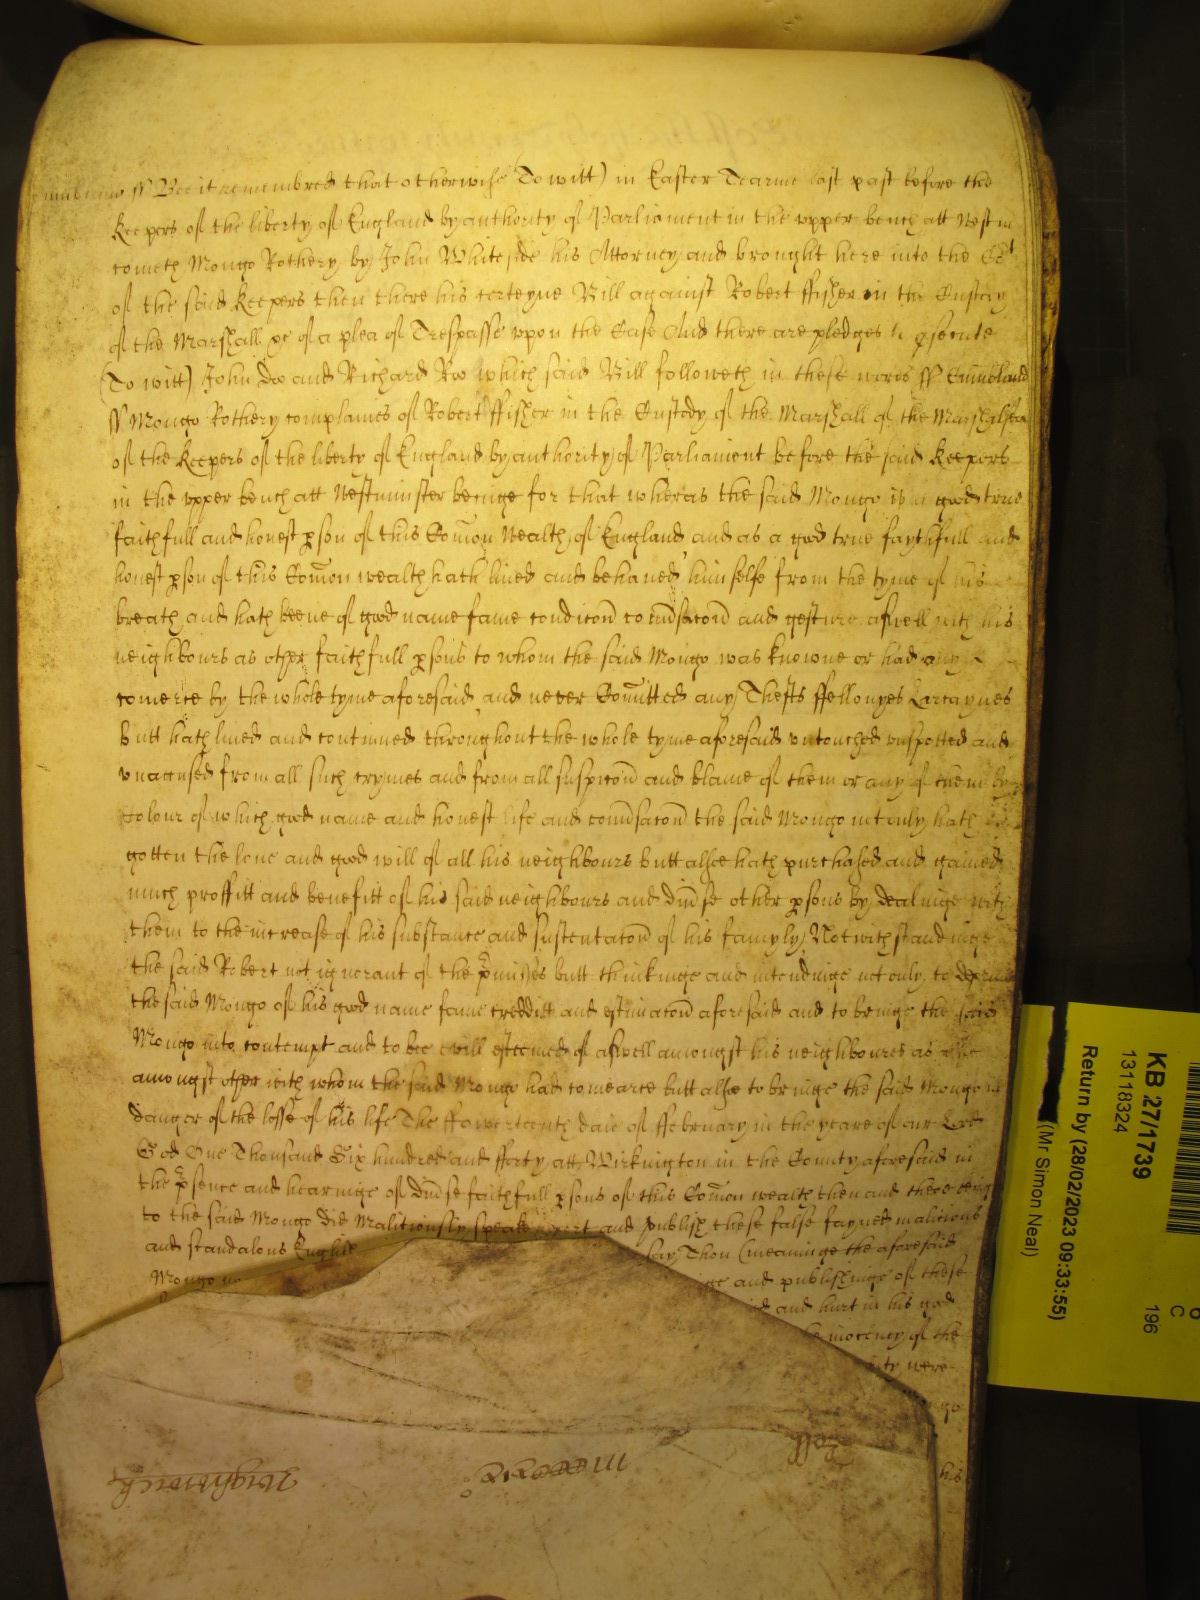 ss Bee it remembred that otherwise (To witt) in Easter Tearme last past before the
Keepers of the liberty of England by authority of Parliament in the vpper bench att Westm
cometh Mongo Rothery by John Whiteside his Attorney and brought here into the Cot
of the said Keepers then there his certeyne Bill against Robert ffisher in the Custody
of the Marshall &c of a plea of Trespasse vpon the Case And there are pledges to psecute
(To witt) John Doo and Richard Roo which said Bill followeth in these words ss Cumbland
ss Mongo Rothery complaines of Robert ffisher in the Custody of the Marshall of the Marshalsea
of the Keepers of the liberty of England by authority of Parliament before the said Keepers
in the vpper bench att Westminster beinge for that wheras the said Mongo is a good true
faithfull and honest pson of this Comon Wealth of England and as a good true faythfull and
honest pson of this Comon wealth hath lived and behaved himselfe from the tyme of his
breath and hath beene of good name fame condicon convsacon and gesture aswell with his
neighbours as other faithfull psons to whom the said Mongo was knowne or had any
comerce by the whole tyme aforesaid and never Comitted any Thefts ffellonyes Larcaynes
Butt hath lived and continued throughout the whole tyme aforesaid vntouched vnspotted and
vnacused from all such crymes and from all suspicon and blame of them or any of them By
Colour of which good name and honest life and convsacon the said Mongo not only hath
gotten the love and good will of all his neighbours Butt alsoe hath purchased and gained
much proffitt and benefitt of his said neighbours and divse other psons by dealinge with
them to the increase of his substance and sustentacon of his famyly Notwithstandinge
the said Robert not ignorant of the pmisses butt thinkinge and intendinge not only to deprive
the said Mongo of his good name fame creditt and estimacon aforesaid and to bringe the said
Mongo into contempt and to bee evill esteemed of aswell amongst his neighboures as
amongst other with whom the said Mongo had comearce butt alsoe to bringe the said Mongo in
danger of the losse of his life The ffowerteenth daie of ffebruary in the yeare of our Lord
God One Thousand Six hundred and fforty att Wirkington in the County aforesaid in
the psence and hearinge of divse faithfull psons of this Comon wealth then and there beinge
to the said Mongo did Malitiously speake report and publish these false fayned malicious
and scandalous Englishe say Thou (meaninge the aforesaid
Mongo and publishinge of these
and hurt in his good
inocency of the
were
his
Wightwick
Roll
KB 27/1739
13118324
196
C
Return by (28/02/2023 09:33:55)
(Mr Simon Neal)